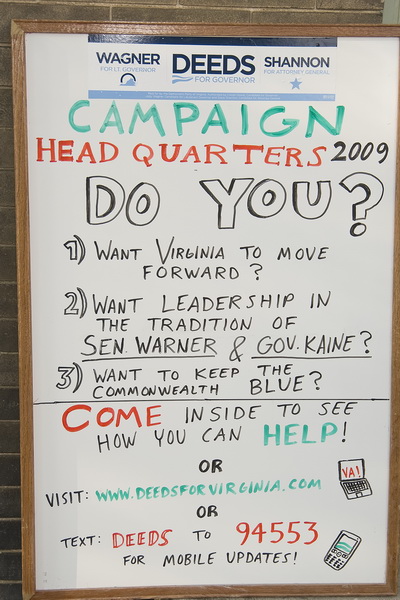 WAGNER DEEDS SHANNON
FOR LT. GOVERNOR FOR GOVERNOR FOR ATTORNEY GENERAL
CAMPAIGN
HEAD QUARTERS 2009
DO YOU?
1) WANT VIRGINIA TO MOVE
FORWARD?
2) WANT LEADERSHIP IN
THE TRADITION OF
SEN. WARNER & GOV. KAINE?
3) WANT TO KEEP THE
COMMONWEALTH BLUE?
COME INSIDE TO SEE
HOW YOU CAN HELP!
OR
VA!
VISIT: WWW.DEEDSFORVIRGINIA.COM
OR
TEXT: DEEDS TO 94553
FOR MOBILE UPDATES!